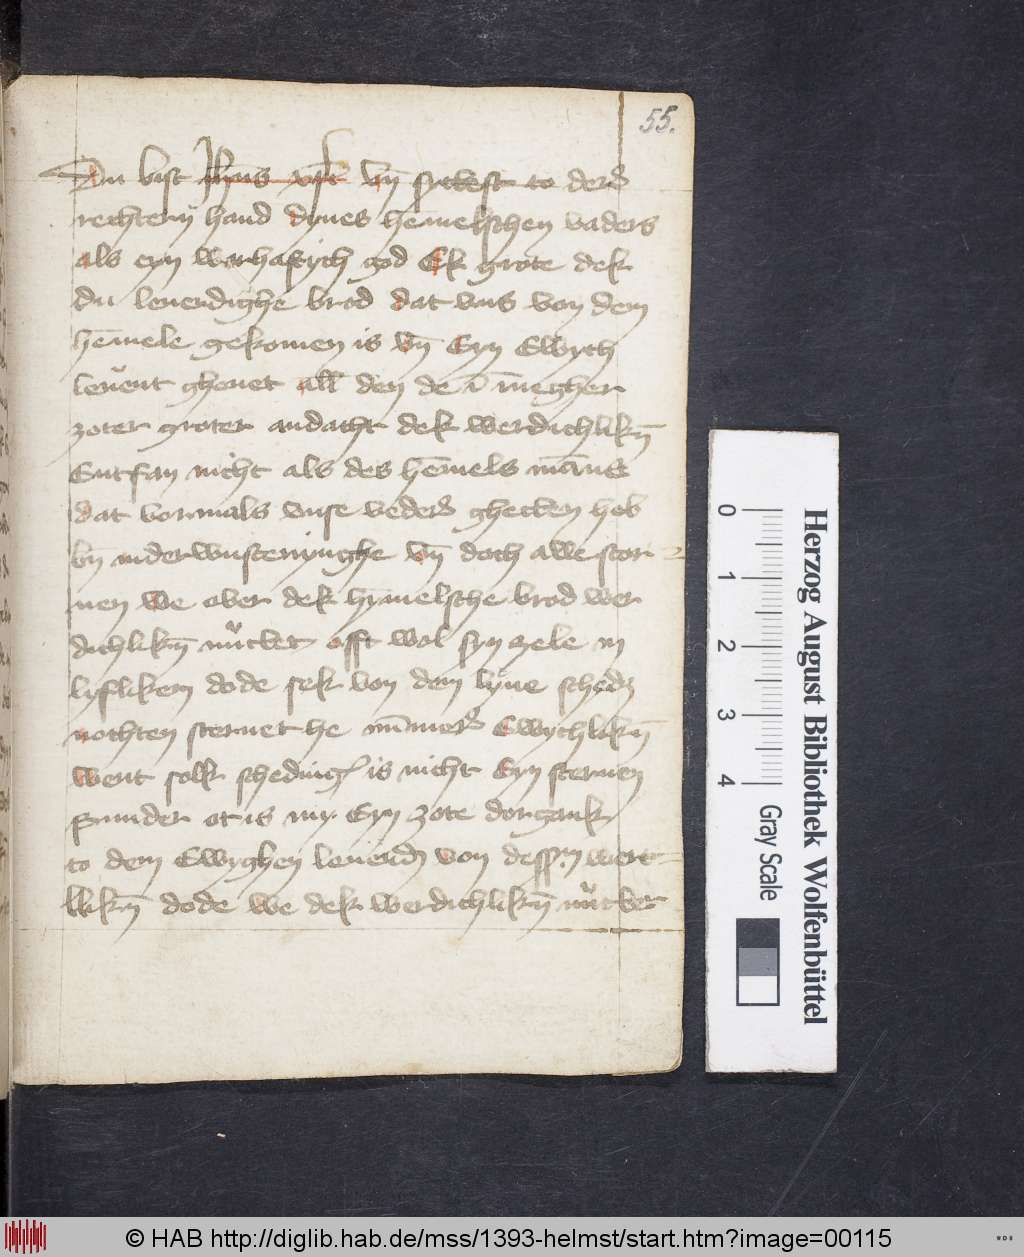 55.
Du bist ihesus xpc vn̄ syttest to der
rechteren hand dynes hemelschen vaders
als eyn warhaftich god Ek grote dek
du leuendighe brod dat vns von dem
hēmele gekomen is vn̄ Eyn Ewych
leuent gheuet all den de ī īnegher
zoter groter andacht dek werdichlikn̄
Entfan nicht als des hēmels māns
dat vormals vnse veders ghetten heb
bn̄ in der wustenynghe vn̄ doch alle stor
uen We ouer dek hymelsche brod wer
dichlikn̄ nuttet offt wol syn zele in
lyfliken dode sek von dem lyue sched
nochten steruet he nūmer Ewychlikn̄
Went solk scheding is nicht Eyn steruen
Sunder ot is my Eyn zote dorgank
to dem Ewyghen leuend von dessm wert
likn̄ dode We dek werdichlikn̄ nuttet
Herzog August Bibliothek Wolfenbüttel
0 1 2 3 4
Gray Scale
© HAB http://diglib.hab.de/mss/1393-helmst/start.htm?image=00115